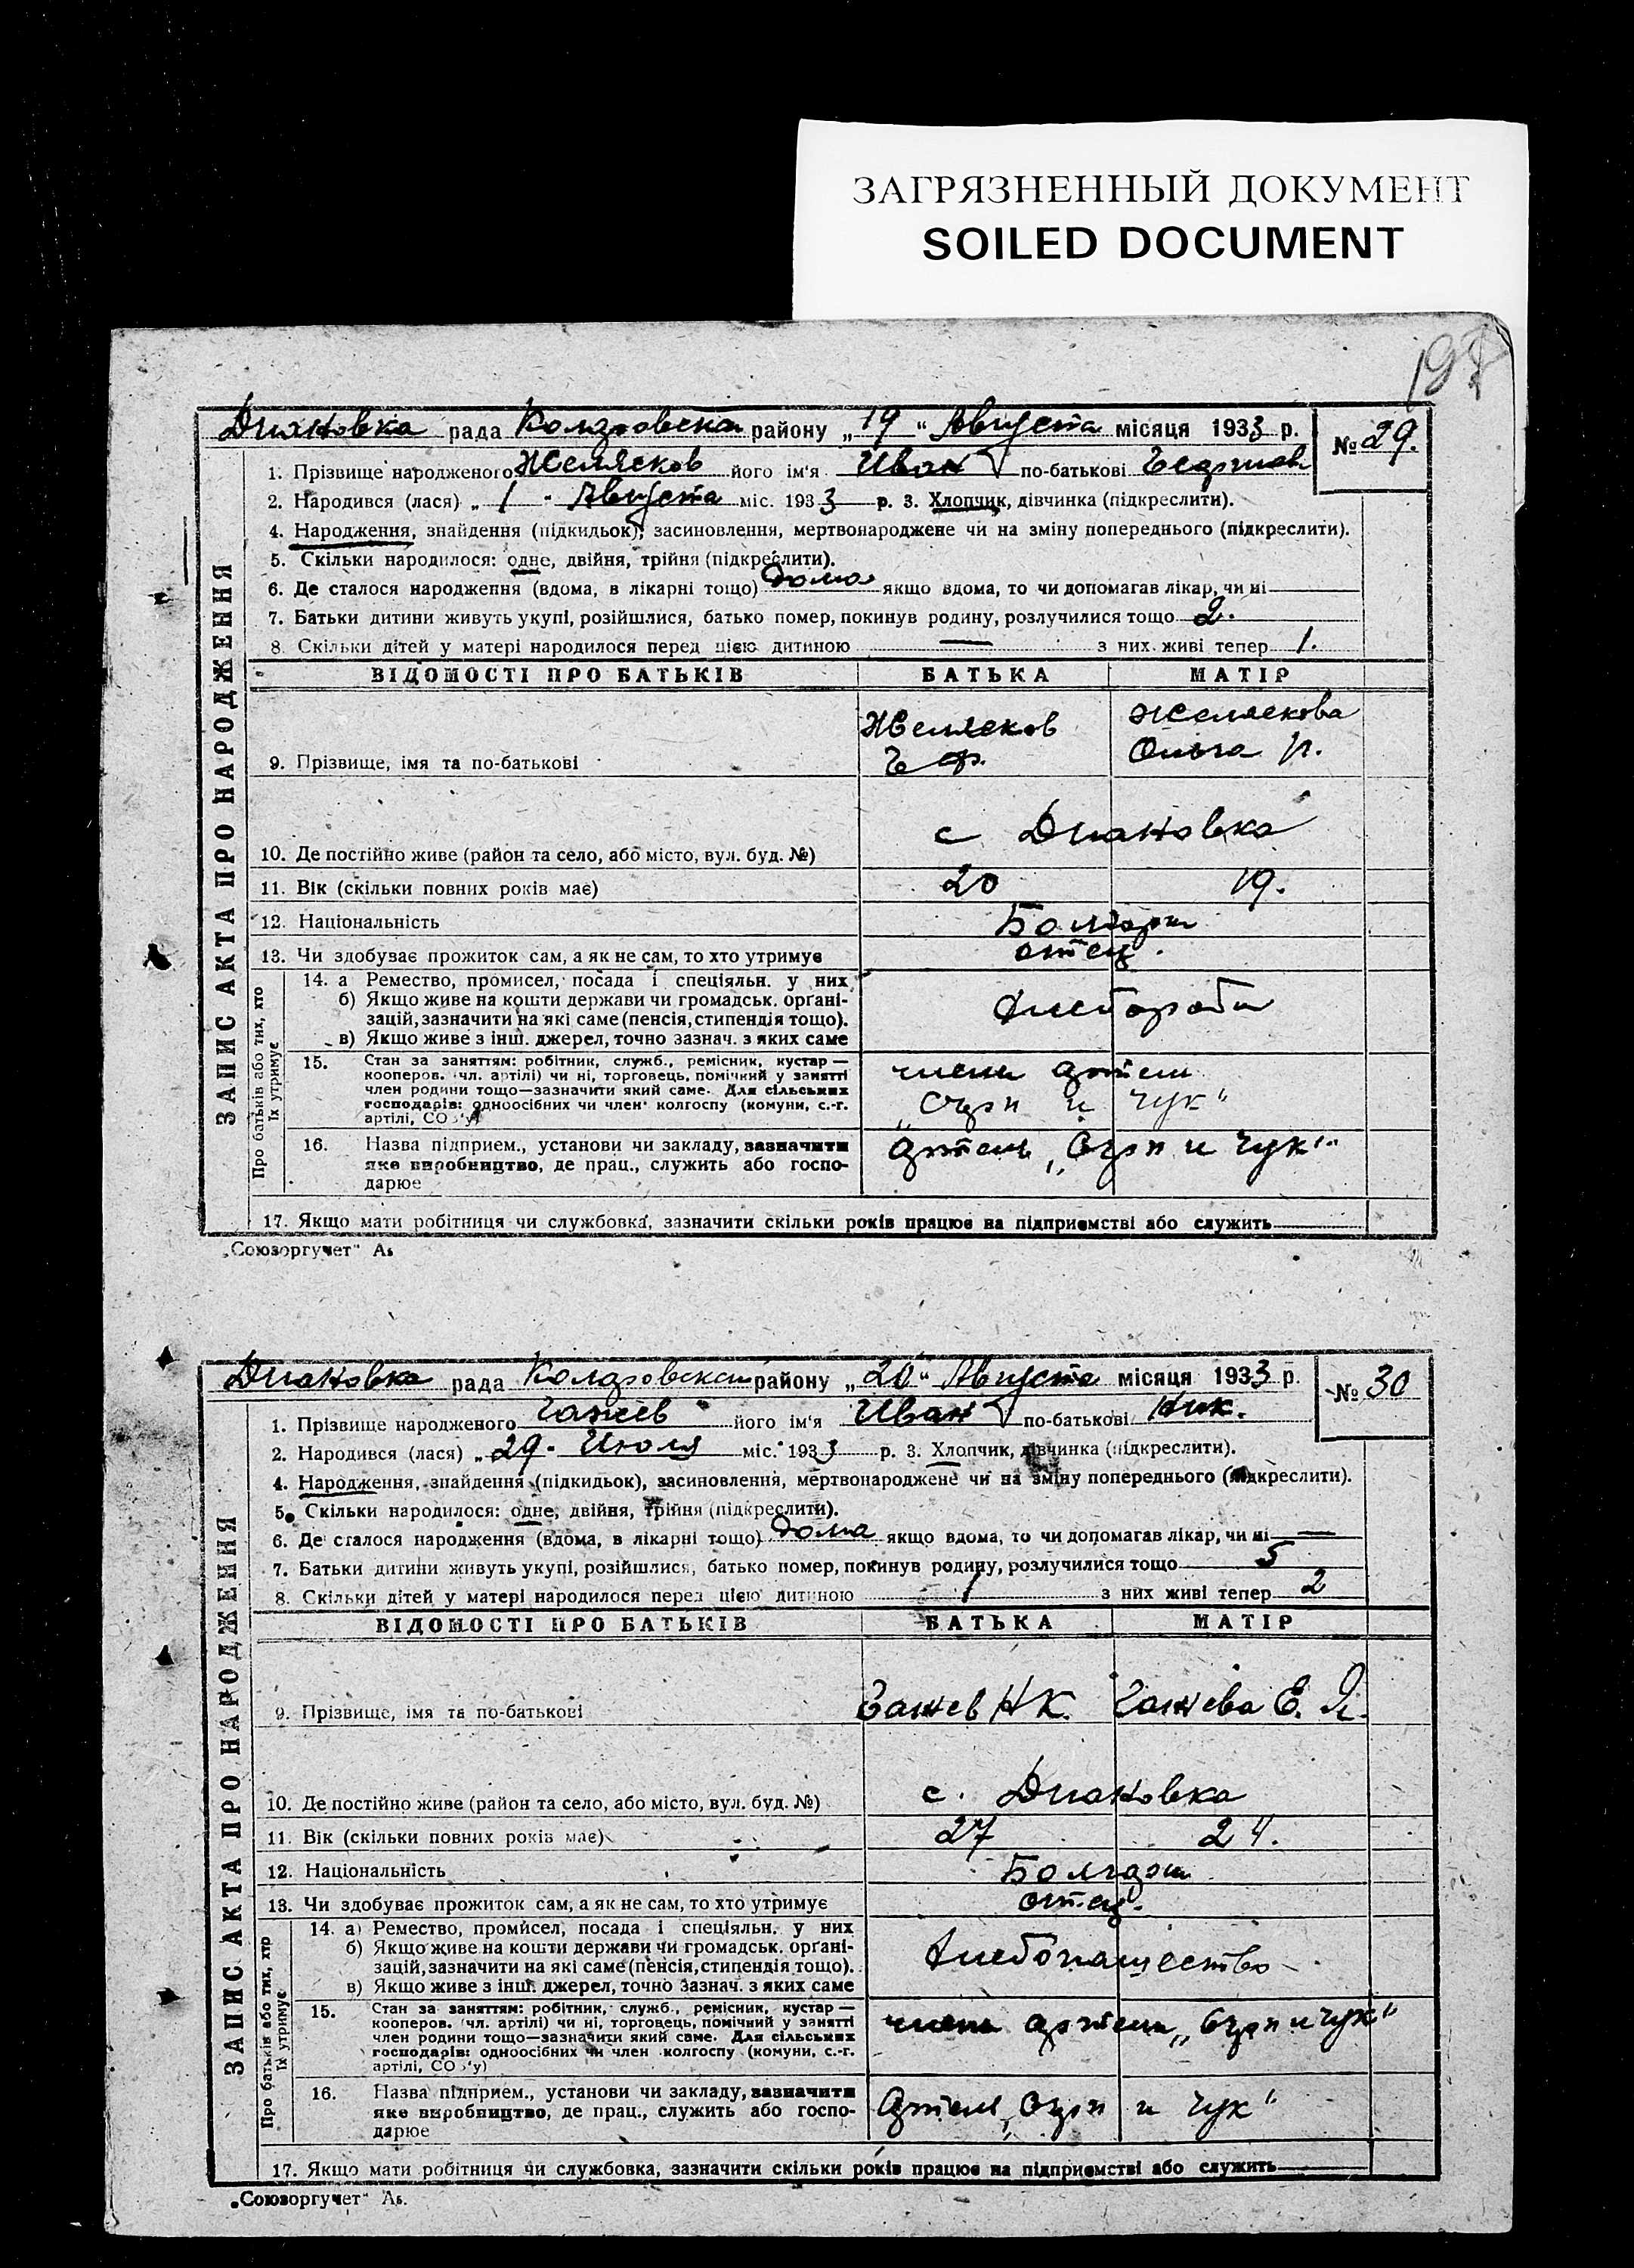 ЗАГРЯЗНЕННЫЙ ДОКУМЕНТ
SOILED DOCUMENT
Диановка рада района „19“ Августа місяця 1933 р. № 29.
1. Прізвище народженого Желясков його ім'я Иван по-батькові
2. Народився (лася) „1 - Августа міс. 1933 р. 3. Хлопчик, дівчинка (підкреслити).
4. Народження, знайдення (підкидьок), засиновлення, мертвонароджене чи на зміну попереднього (підкреслити).
5. Скільки народилося: одне, двійня, трійня (підкреслити).
6. Де сталося народження (вдома, в лікарні тощо) дома якщо вдома, то чи допомагав лікар, чи ні —
7. Батьки дитини живуть укупі, розійшлися, батько помер, покинув родину, розлучилися тощо 2.
8. Скільки дітей у матері народилося перед цією дитиною — з них живі тепер 1.
ЗАПИС АКТА ПРО НАРОДЖЕННЯ
ВІДОМОСТІ ПРО БАТЬКІВ БАТЬКА МАТІР
Желясков Желяскова
9. Прізвище, імя та по-батькові Ольга
10. Де постійно живе (район та село, або місто, вул. буд. №) с Диановка
11. Вік (скільки повних років має) 20 19.
12. Національність Болгари
13. Чи здобуває прожиток сам, а як не сам, то хто утримує отец.
Про батьків або тих, хто їх утримує
14. а Ремество, промисел, посада і спеціяльн. у них
б) Якщо живе на кошти держави чи громадськ. органі-
зацій, зазначити на які саме (пенсія, стипендія тощо). Хлебороби
в) Якщо живе з інш. джерел, точно зазнач. з яких саме
15. Стан за заняттям: робітник, служб., ремісник, кустар —
кооперов. чл. артілі) чи ні, торговець, помічний у занятті члени артели
член родини тощо—зазначити який саме. Для сільських
господарів: одноосібних чи член колгоспу (комуни, с.-г. „Сърп и чук“
артілі, СОЗ'у)
16. Назва підприєм., установи чи закладу, зазначити артель „Сърп и чук“
яке виробництво, де прац., служить або госпо-
дарює
17. Якщо мати робітниця чи службовка, зазначити скільки років працює на підприємстві або служить —
„Союзоргучет“
Диановка рада району „20“ Августа місяця 1933 р. № 30
1. Прізвище народженого його ім'я Иван по-батькові Ник.
2. Народився (лася) „29 - Июля міс. 1933 р. 3. Хлопчик, дівчинка (підкреслити).
4. Народження, знайдення (підкидьок), засиновлення, мертвонароджене чи на зміну попереднього (підкреслити).
5. Скільки народилося: одне, двійня, трійня (підкреслити).
6. Де сталося народження (вдома, в лікарні тощо) дома якщо вдома, то чи допомагав лікар, чи ні —
7. Батьки дитини живуть укупі, розійшлися, батько помер, покинув родину, розлучилися тощо 5
8. Скільки дітей у матері народилося перед цією дитиною 1 з них живі тепер 2
ЗАПИС АКТА ПРО НАРОДЖЕННЯ
ВІДОМОСТІ ПРО БАТЬКІВ БАТЬКА МАТІР
9. Прізвище, імя та по-батькові Н К. Е. Я.
10. Де постійно живе (район та село, або місто, вул. буд. №) с. Диановка
11. Вік (скільки повних років має) 27 24.
12. Національність Болгари
13. Чи здобуває прожиток сам, а як не сам, то хто утримує отец.
Про батьків або тих, хто їх утримує
14. а) Ремество, промисел, посада і спеціяльн. у них
б) Якщо живе на кошти держави чи громадськ. органі-
зацій, зазначити на які саме (пенсія, стипендія тощо). Хлебопашество
в) Якщо живе з інш. джерел, точно зазнач. з яких саме
15. Стан за заняттям: робітник, служб., ремісник, кустар —
кооперов. чл. артілі) чи ні, торговець, помічний у занятті члени артели „Сърп и чук“
член родини тощо—зазначити який саме. Для сільських
господарів: одноосібних чи член колгоспу (комуни, с.-г.
артілі, СОЗ'у)
16. Назва підприєм., установи чи закладу, зазначити артель „Сърп и чук“
яке виробництво, де прац., служить або госпо-
дарює
17. Якщо мати робітниця чи службовка, зазначити скільки років працює на підприємстві або служить —
„Союзоргучет“